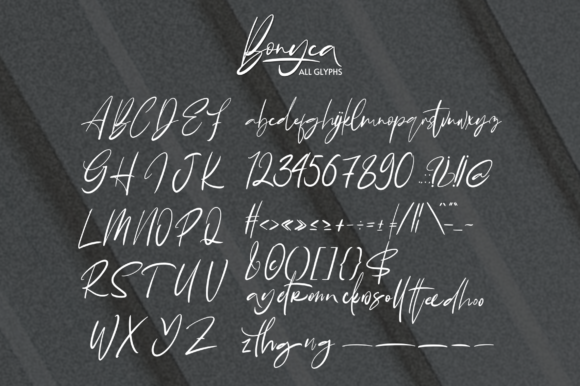 Bonyca
ALL GLYPHS
ABCDEF
GHIJK
LMNOPQ
RSTUV
WXYZ
abcdefghijklmnopqrstuvwxyz
1234567890 .,:;?!&@
#<>«»≤≥+-÷=±≠/||\
()[]{}$
zthgng